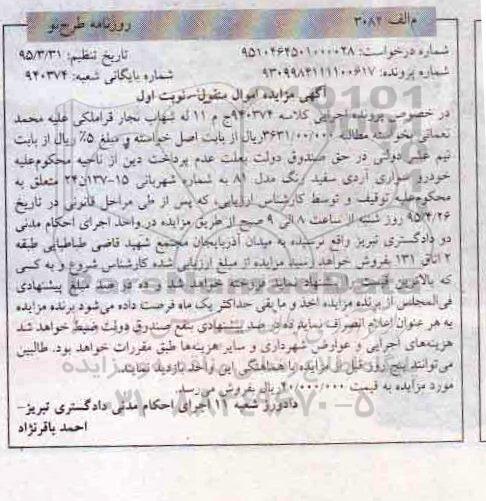 م الف ۳۰۸۲
روزنامه طرح نو
شماره درخواست: ۹۵۱۰۴۶۴۵۰۱۰۰۰۰۲۸
تاریخ تنظیم: ۹۵/۳/۳۱
شماره پرونده: ۹۳۰۹۹۸۴۱۱۱۱۰۰۶۱۷
شماره بایگانی شعبه: ۹۴۰۳۷۴
آگهی مزایده اموال منقول – نوبت اول
در خصوص پرونده اجرایی کلاسه ۹۴۰۳۷۴ج م ۱۱ له شهاب نجار قراملکی علیه محمد
نعمانی بخواسته مطالبه ۳۶۳۱/۰۰/۰۰۰ریال از بابت اصل خواسته و مبلغ ۵٪ ریال از بابت
نیم عشر دولتی در حق صندوق دولت بعلت عدم پرداخت دین از ناحیه محکوم‌علیه
خودرو سواری آردی سفید رنگ مدل ۸۱ به شماره شهربانی ۱۵-۱۳۷ن۲۴ متعلق به
محکوم‌علیه توقیف و توسط کارشناس ارزیابی، که پس از طی مراحل قانونی در تاریخ
۹۵/۴/۲۶ روز شنبه از ساعت ۸ الی ۹ صبح از طریق مزایده در واحد اجرای احکام مدنی
دو دادگستری تبریز واقع نرسیده به میدان آذربایجان مجتمع شهید قاضی طباطبایی طبقه
۲ اتاق ۱۳۱ بفروش خواهد رسید مزایده از مبلغ ارزیابی شده کارشناس شروع و به کسی
که بالاترین قیمت را پیشنهاد نماید فروخته خواهد شد و ده در صد مبلغ پیشنهادی
فی‌المجلس از برنده مزایده اخذ و مابقی حداکثر یک ماه فرصت داده می‌شود برنده مزایده
به هر عنوان اعلام انصراف نماید ده در صد پیشنهادی بنفع صندوق دولت ضبط خواهد شد
هزینه‌های اجرایی و عوارض شهرداری و سایر هزینه‌ها طبق مقررات خواهد بود. طالبین
می‌توانند پنج روز قبل از مزایده با هماهنگی این واحد بازدید نمایند.
مورد مزایده به قیمت ۴۰/۰۰۰/۰۰۰ریال بفروش می‌رسد.
دادورز شعبه ۱۱اجرای احکام مدنی دادگستری تبریز–
احمد باقرنژاد